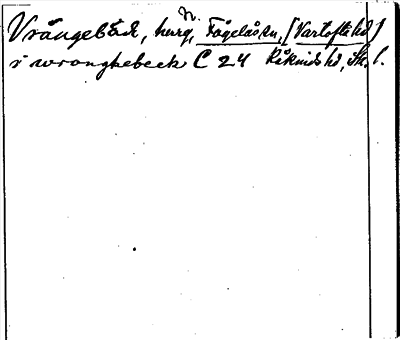 Vrångebäck, herrg, n. Fågelås sn, [Vartofta hd]
i wronghebeck C 24 Råkinds hd, Sk. l.